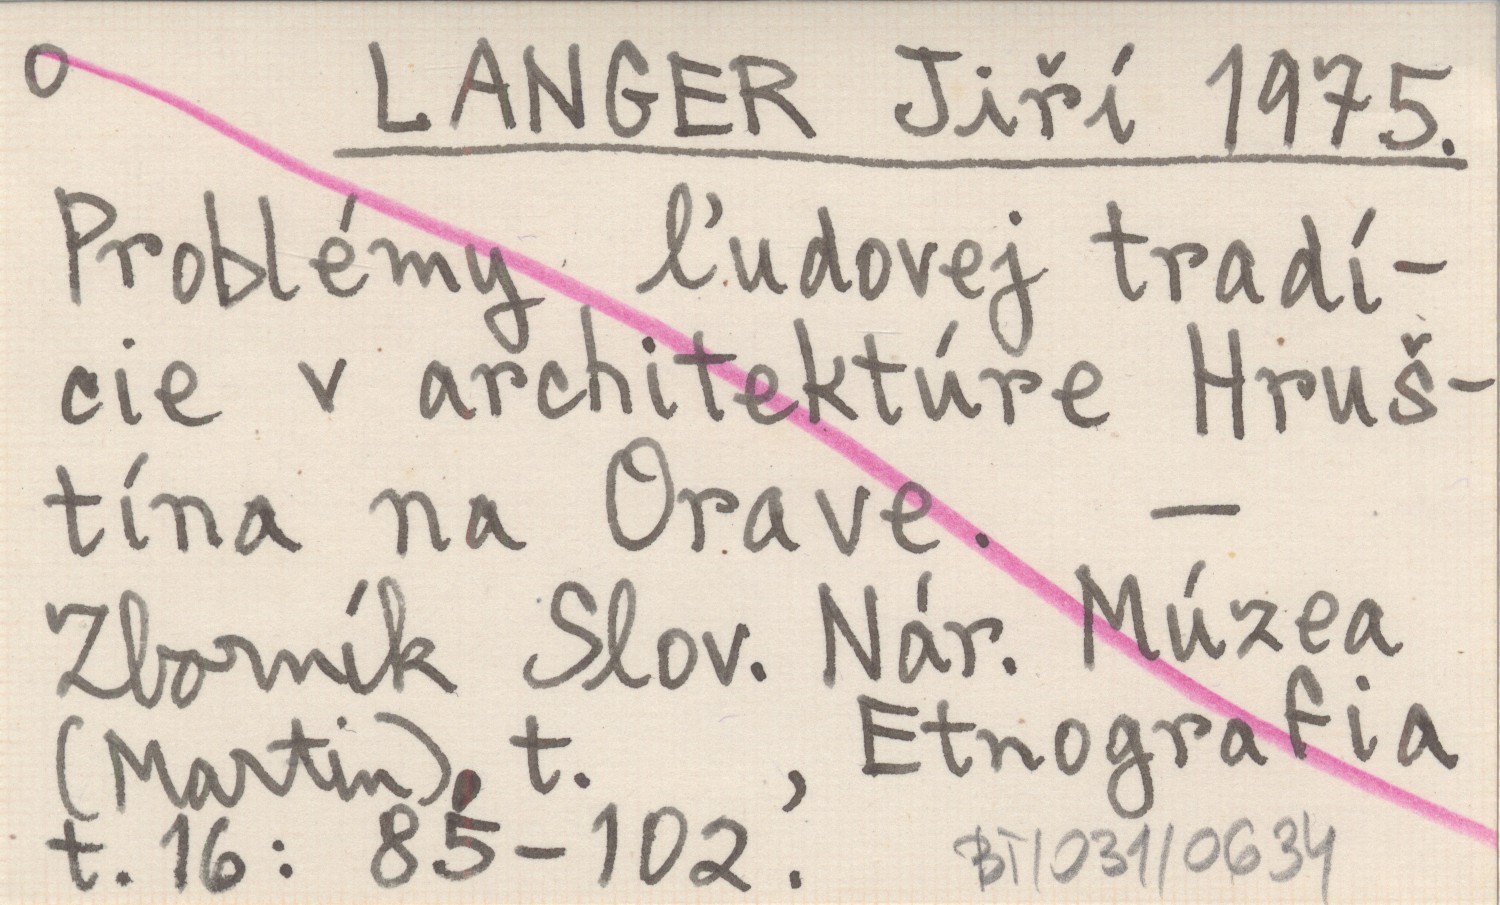 O LANGER Jiří 1975.
Problémy ľudovej tradí-
cie v architektúre Hruš-
tína na Orave. —
Zborník Slov. Nár. Múzea
(Martin), t. , Etnografia
t. 16: 85-102.
BT/031/0634